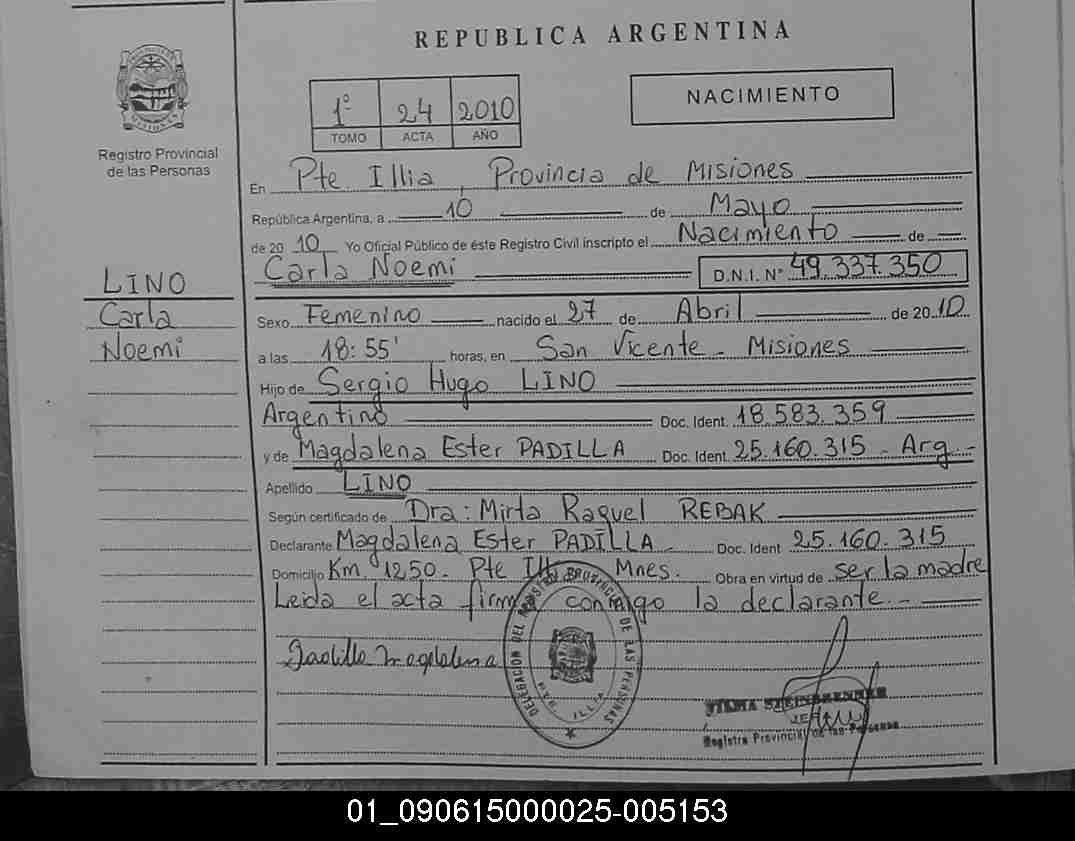 REPUBLICA ARGENTINA
1º 24 2010
TOMO ACTA AÑO
NACIMIENTO
Registro Provincial
de las Personas
En Pte. Illia, Provincia de Misiones
República Argentina, a 10 de Mayo
de 20 10 Yo Oficial Público de éste Registro Civil inscripto el Nacimiento de
Carla Noemi D.N.I. N° 49.337.350
LINO
Carla
Noemi
Sexo Femenino nacido el 27 de Abril de 2010
a las 18:55' horas, en San Vicente - Misiones
Hijo de Sergio Hugo LINO
Argentino Doc. Ident. 18.583.359
y de Magdalena Ester PADILLA Doc. Ident 25.160.315 - Arg.
Apellido LINO
Según certificado de Dra: Mirta Raquel REBAK
Declarante Magdalena Ester PADILLA - Doc. Ident 25.160.315
Domicilio Km 1250. Pte Illia Mnes. Obra en virtud de ser la madre
Leida el acta firma conmigo la declarante.-
Padilla Magdalena
DELEGACION DEL REGISTRO PROVINCIAL DE LAS PERSONAS
ILLIA
Registro Provincial de las Personas
01_090615000025-005153